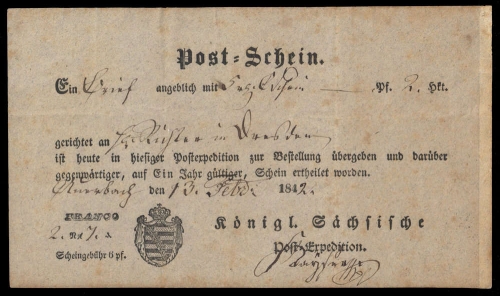 Post-Schein.
Ein Brief angeblich mit Schein — Pf. 2. Hkt.
gerichtet an Richter in Dresden
ist heute in hiesiger Postexpedition zur Bestellung übergeben und darüber
gegenwärtiger, auf Ein Jahr gültiger, Schein ertheilet worden.
Auerbach den 13. Febr. 1842.
FRANCO
2. Ng.
Königl. Sächsische
Scheingebühr 6 pf.
Post-Expedition.